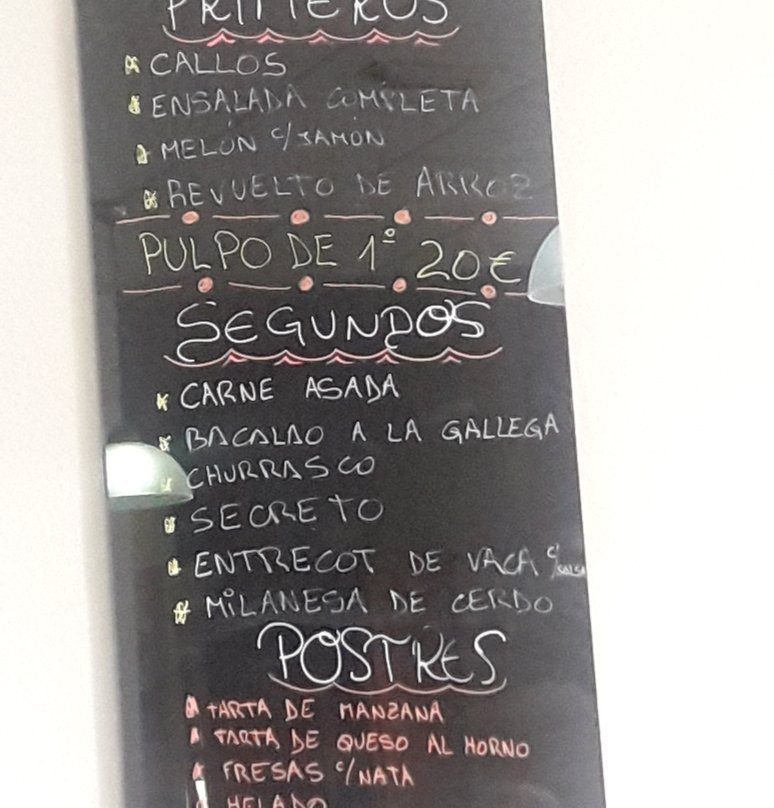 PRIMEROS
CALLOS
ENSALADA COMPLETA
MELÓN C/JAMÓN
REVUELTO DE ARROZ
PULPO DE 1º 20€
SEGUNDOS
CARNE ASADA
BACALAO A LA GALLEGA
CHURRASCO
SECRETO
ENTRECOT DE VACA C/SALSA
MILANESA DE CERDO
POSTRES
TARTA DE MANZANA
TARTA DE QUESO AL HORNO
FRESAS C/NATA
HELADO